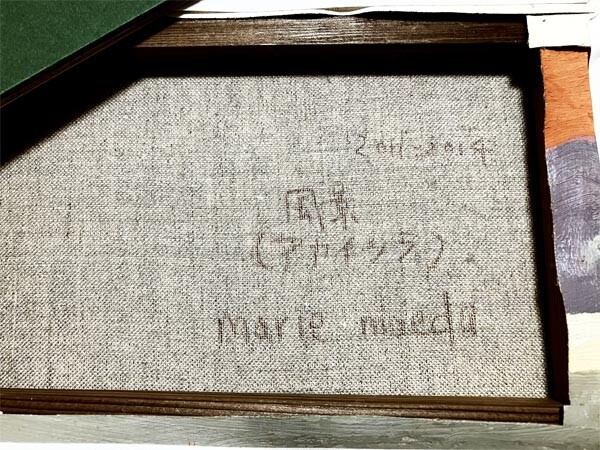 2011-2014
風景
(アカイツチ)
marie maeda